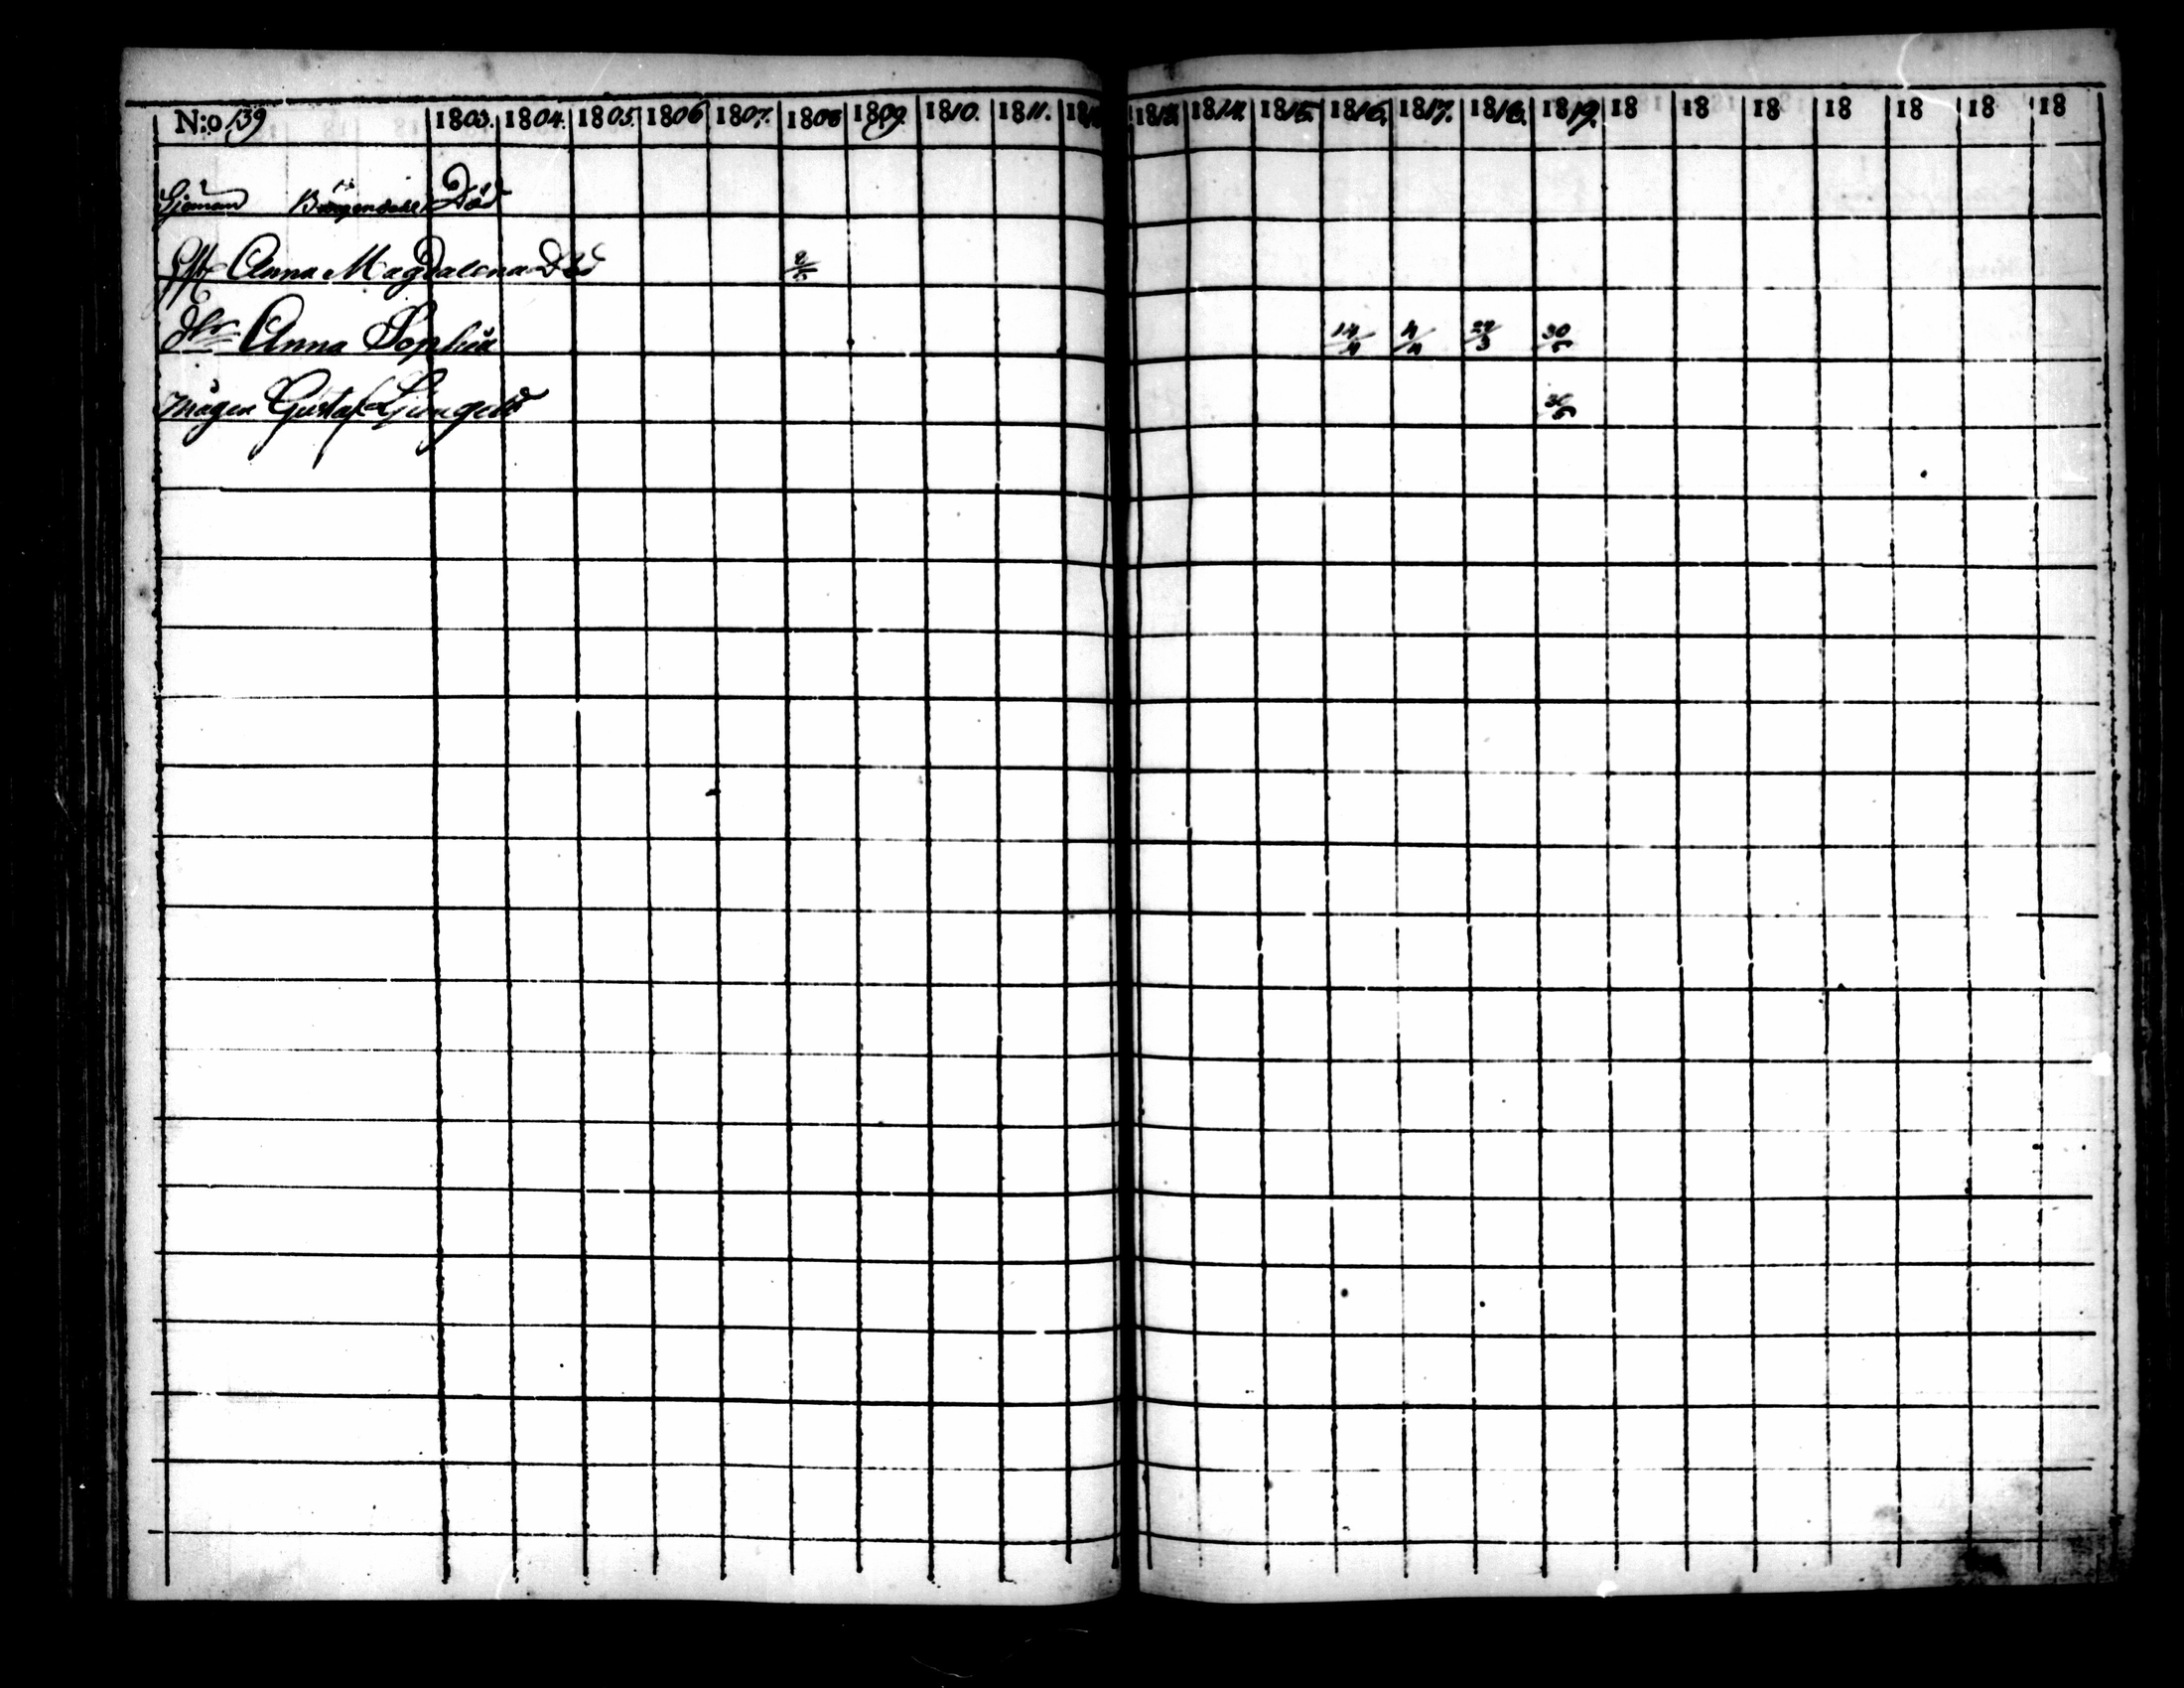 N:o 139 1803. 1804. 1805. 1806 1807. 1808 1809. 1810. 1811. 1812 1813 1814. 1815. 1816. 1817. 1818. 1819. 18 18 18 18 18 18 18
Sjöman Död
Anna Magdalena Död
dtr Anna Sophia 14/4 4/4 22/3 30/5
mågen Gustaf 30/5